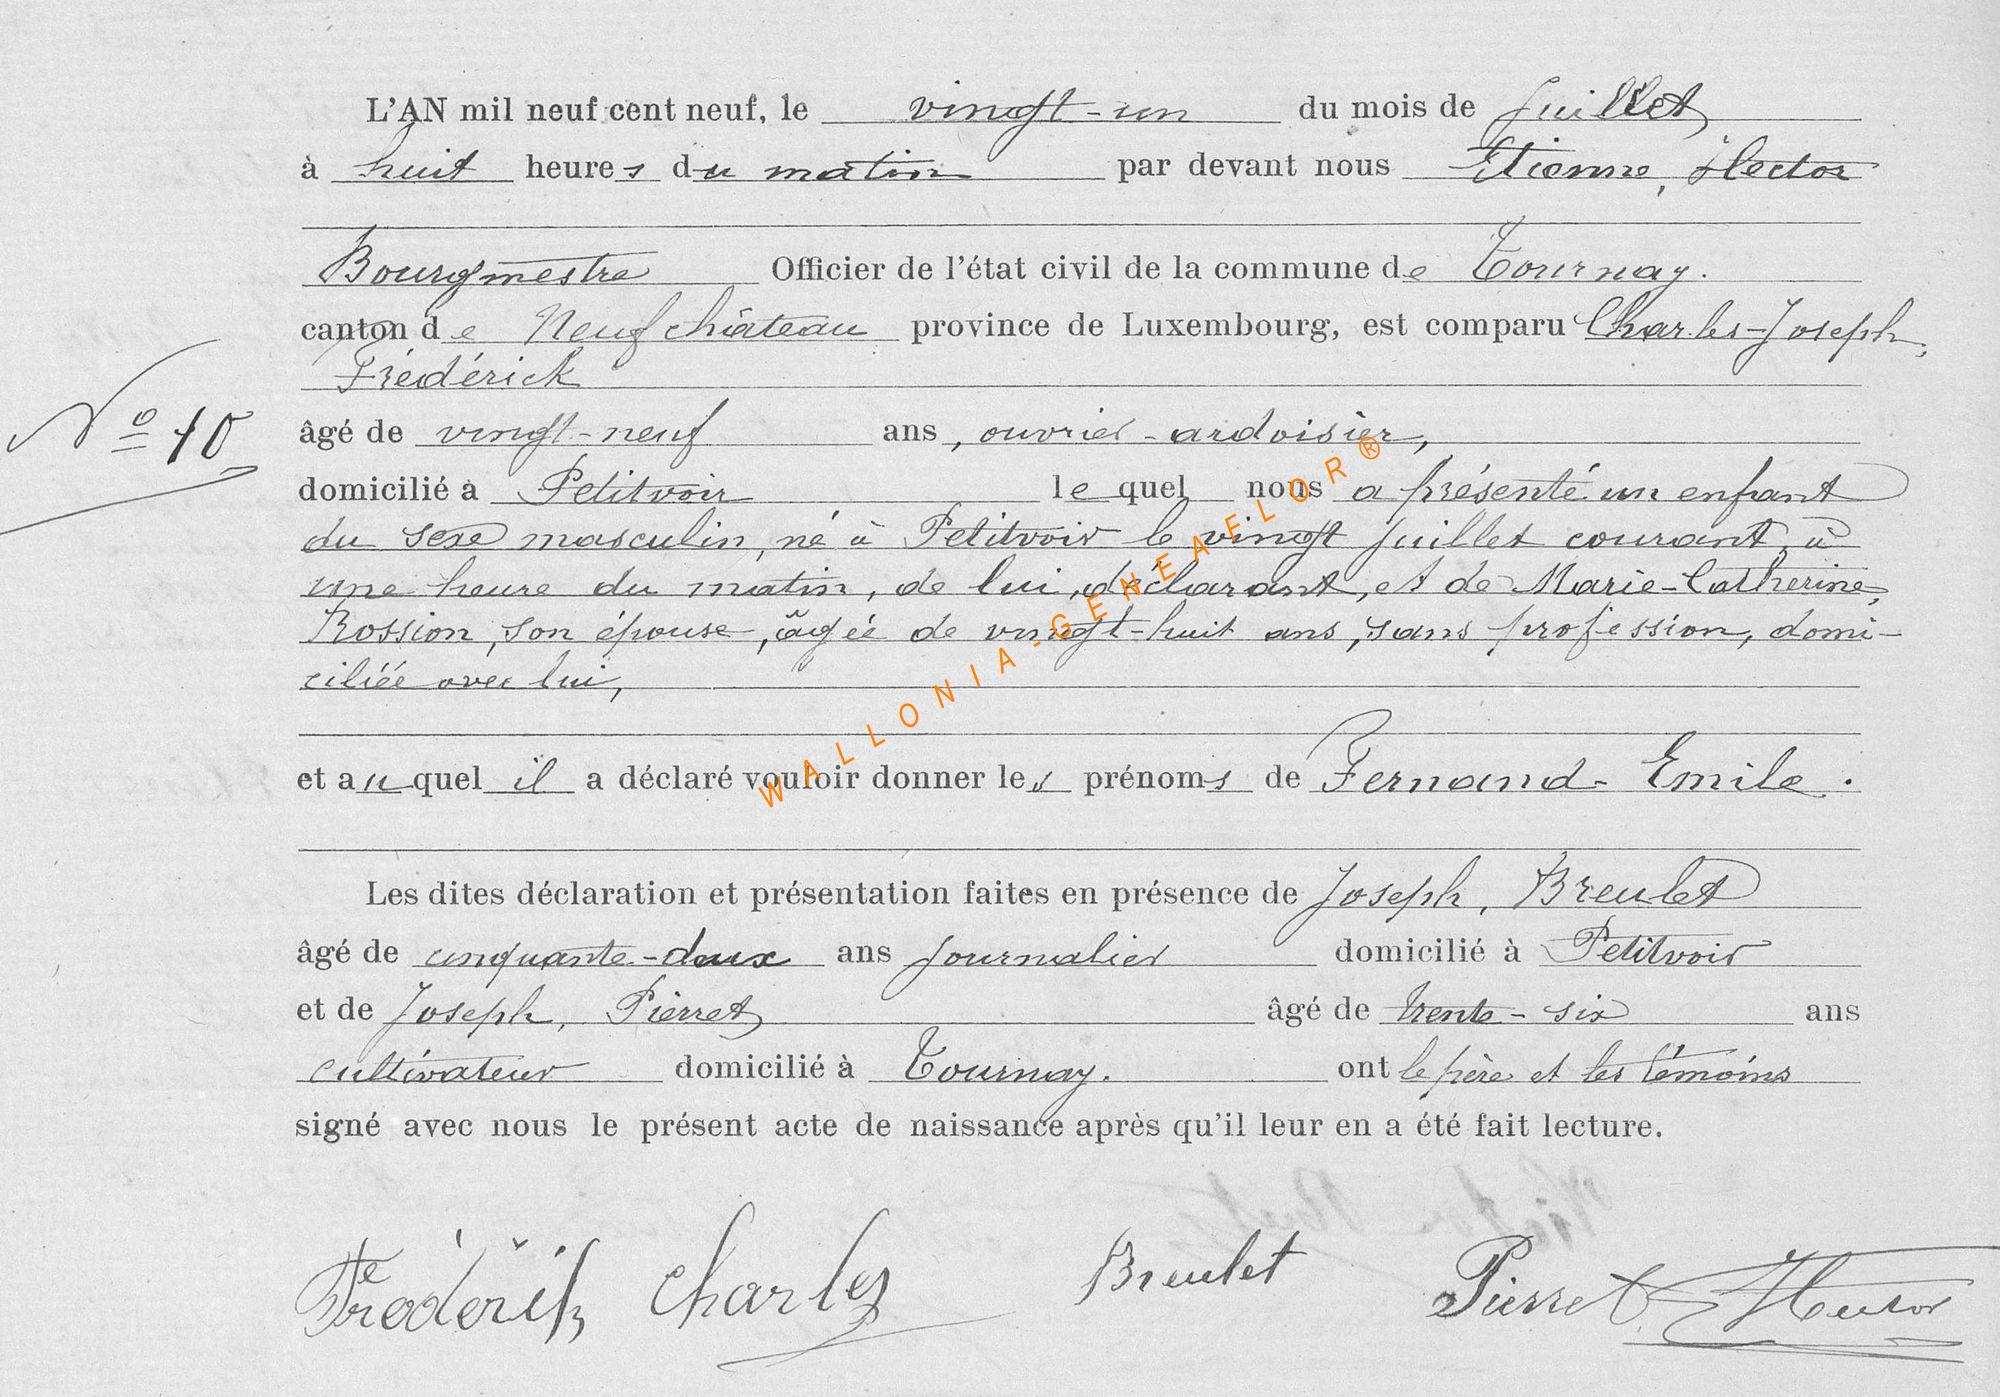 L'AN mil neuf cent neuf, le vingt-un du mois de Juillet
à huit heures du matin par devant nous Etienne, Hector
Bourgmestre Officier de l'état civil de la commune de Tournay.
canton de Neufchâteau province de Luxembourg, est comparu Charles-Joseph,
Frédérick
Nº 10
âgé de vingt-neuf ans, ouvrier-ardoisier,
domicilié à Petitvoir lequel nous a présenté un enfant
du sexe masculin, né à Petitvoir le vingt juillet courant, à
une heure du matin, de lui, déclarant, et de Marie-Catherine,
Rossion, son épouse, âgée de vingt-huit ans, sans profession, domi-
ciliée avec lui,
et auquel il a déclaré vouloir donner les prénoms de Fernand-Emile.
Les dites déclaration et présentation faites en présence de Joseph, Breulet
âgé de cinquante-deux ans journalier domicilié à Petitvoir
et de Joseph, Pierret âgé de trente-six ans
cultivateur domicilié à Tournay. ont le père et les témoins
signé avec nous le présent acte de naissance après qu'il leur en a été fait lecture.
Fréderik Charles Breulet Pierret Hector
WALLONIA-GENEAELOR®